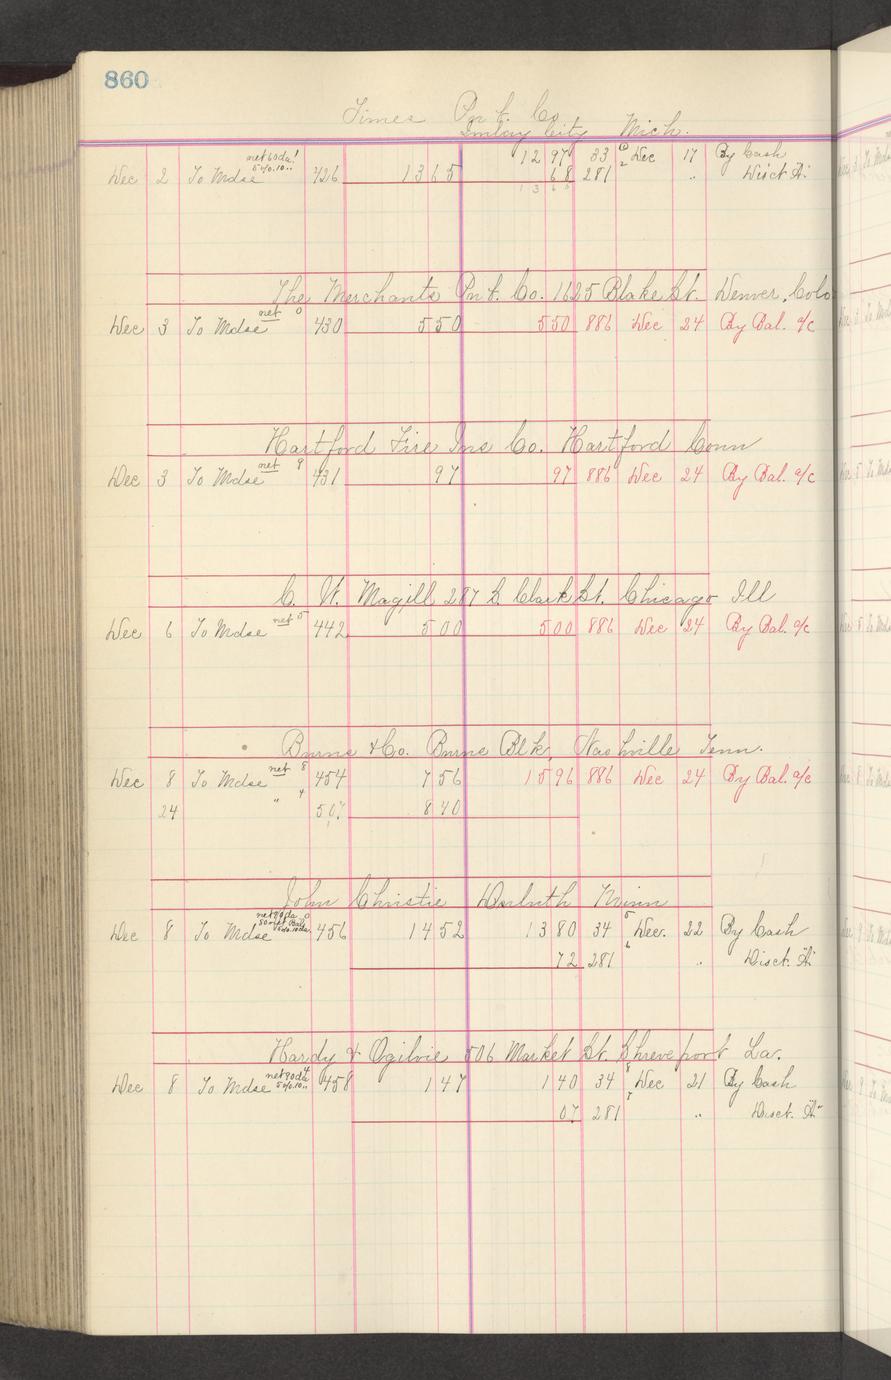 860
Times Pnt. Co
Imlay City Mich.
net 60 da 1
5% 10 "
Dec 2 To Mdse 426 13 65 12 97 33 Dec 17 By Cash
68 281 " Disct. "A"
13 65
The Merchants Pnt. Co. 1625 Blake St. Denver, Colo
Dec 3 To Mdse net 0 430 5 50 5 50 886 Dec 24 By Bal. a/c
Hartford Fire Ins Co. Hartford Conn
Dec 3 To Mdse net 9 431 97 97 886 Dec 24 By Bal. a/c
C. W. Magill 287 S. Clark St. Chicago Ill
Dec 6 To Mdse net 5 442 5 00 5 00 886 Dec 24 By Bal. a/c
& Co. Blk, Nashville Tenn.
Dec 8 To Mdse net 8 454 7 56 15 96 886 Dec 24 By Bal. a/c
24 " 4 507 8 40
John Christie Duluth Minn
net 90 da 0
5% 10 da
Dec 8 To Mdse 456 14 52 13 80 34 Dec. 22 By Cash
72 281 " Disct. "A"
Hardy & Ogilvie 506 Market St. Shreveport La.
net 90 da 4
5% 10 "
Dec 8 To Mdse 458 1 47 1 40 34 Dec 21 By Cash
07 281 " Disct. "A"